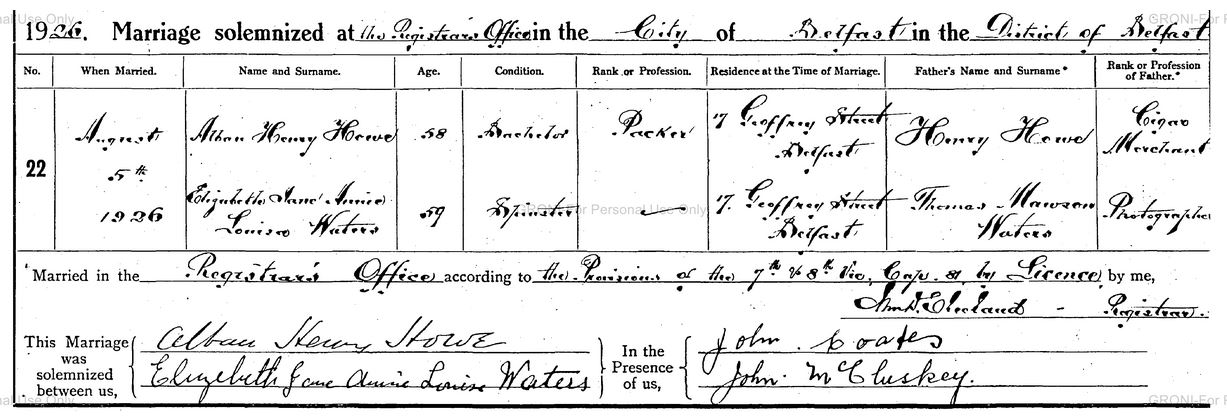 1926. Marriage solemnized at the Registrar's Office in the City of Belfast in the District of Belfast
No. When Married. Name and Surname. Age. Condition. Rank or Profession. Residence at the Time of Marriage. Father's Name and Surname* Rank or Profession of Father.*
22
August
5th
1926
Alban Henry Howe 58 Bachelor Packer 7 Geoffrey Street
Belfast
Henry Howe Cigar
Merchant
Elizabeth Jane Annie
Louisa Waters
59 Spinster 7. Geoffrey Street
Belfast
Thomas Mawson
Waters
Photographer
Married in the Registrar's Office according to the Provisions of the 7th & 8th Vic, Cap. 81 by Licence by me,
Cleland - Registrar.
This Marriage
was
solemnized
between us,
Alban Henry Howe
Elizabeth Jane Annie Louise Waters
In the
Presence
of us,
John Coates
John McCluskey.
GRONI-For Personal Use Only